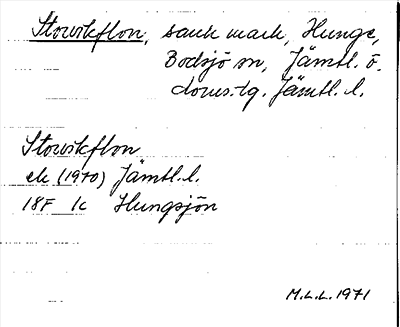 Storvikflon, sank mark, Hunge,
Bodsjö sn, Jämtl. ö.
doms.-lg. Jämtl. l.
Storvikflon
ek (1970) Jämtl. l.
18F 1c Hungsjön
M.L.L. 1971